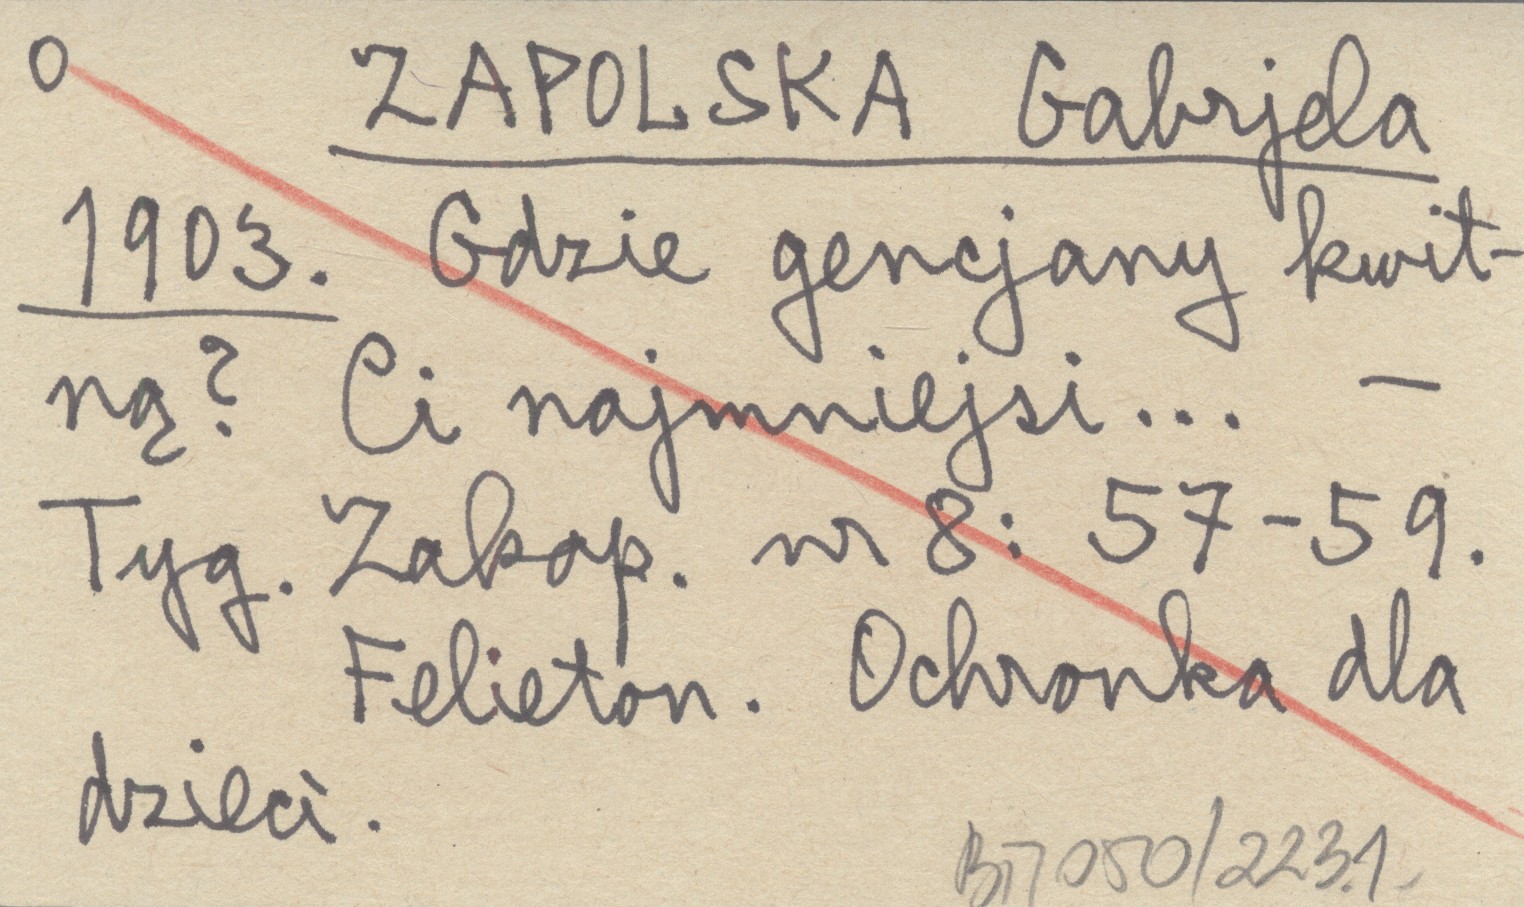 O ZAPOLSKA Gabrjela
1903. Gdzie gencjany kwit-
ną? Ci najmniejsi... —
Tyg. Zakop. nr 8: 57-59.
Felieton. Ochronka dla
dzieci.
050/223.1.